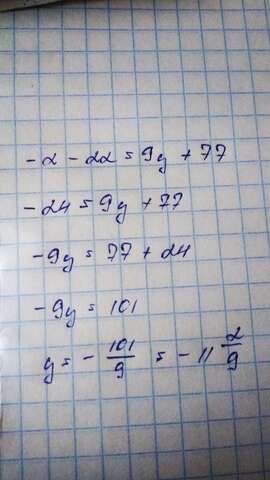 -2 - 22 = 9y + 77
-24 = 9y + 77
-9y = 77 + 24
-9y = 101
y = - 101/9 = -11 2/9